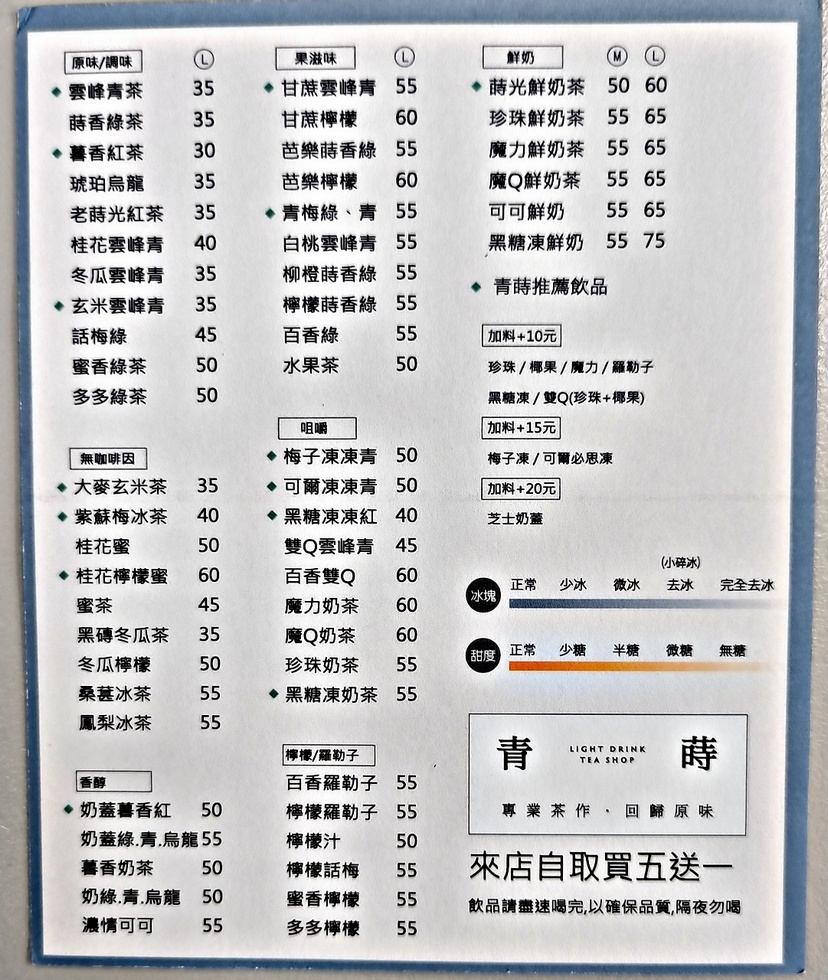 原味/調味 L
◆ 雲峰青茶 35
蒔香綠茶 35
◆ 薯香紅茶 30
琥珀烏龍 35
老蒔光紅茶 35
桂花雲峰青 40
冬瓜雲峰青 35
◆ 玄米雲峰青 35
話梅綠 45
蜜香綠茶 50
多多綠茶 50
無咖啡因
◆ 大麥玄米茶 35
◆ 紫蘇梅冰茶 40
桂花蜜 50
◆ 桂花檸檬蜜 60
蜜茶 45
黑磚冬瓜茶 35
冬瓜檸檬 50
桑葚冰茶 55
鳳梨冰茶 55
香醇
◆ 奶蓋薯香紅 50
奶蓋綠.青.烏龍 55
薯香奶茶 50
奶綠.青.烏龍 50
濃情可可 55
果滋味 L
◆ 甘蔗雲峰青 55
甘蔗檸檬 60
芭樂蒔香綠 55
芭樂檸檬 60
◆ 青梅綠、青 55
白桃雲峰青 55
柳橙蒔香綠 55
檸檬蒔香綠 55
百香綠 55
水果茶 50
咀嚼
◆ 梅子凍凍青 50
◆ 可爾凍凍青 50
◆ 黑糖凍凍紅 40
雙Q雲峰青 45
百香雙Q 60
魔力奶茶 60
魔Q奶茶 60
珍珠奶茶 55
◆ 黑糖凍奶茶 55
檸檬/羅勒子
百香羅勒子 55
檸檬羅勒子 55
檸檬汁 50
檸檬話梅 55
蜜香檸檬 55
多多檸檬 55
鮮奶 M L
◆ 蒔光鮮奶茶 50 60
珍珠鮮奶茶 55 65
魔力鮮奶茶 55 65
魔Q鮮奶茶 55 65
可可鮮奶 55 65
黑糖凍鮮奶 55 75
◆ 青蒔推薦飲品
加料+10元
珍珠/椰果/魔力/羅勒子
黑糖凍/雙Q(珍珠+椰果)
加料+15元
梅子凍/可爾必思凍
加料+20元
芝士奶蓋
(小碎冰)
冰塊 正常 少冰 微冰 去冰 完全去冰
甜度 正常 少糖 半糖 微糖 無糖
青 LIGHT DRINK TEA SHOP 蒔
專業茶作·回歸原味
來店自取買五送一
飲品請盡速喝完,以確保品質,隔夜勿喝